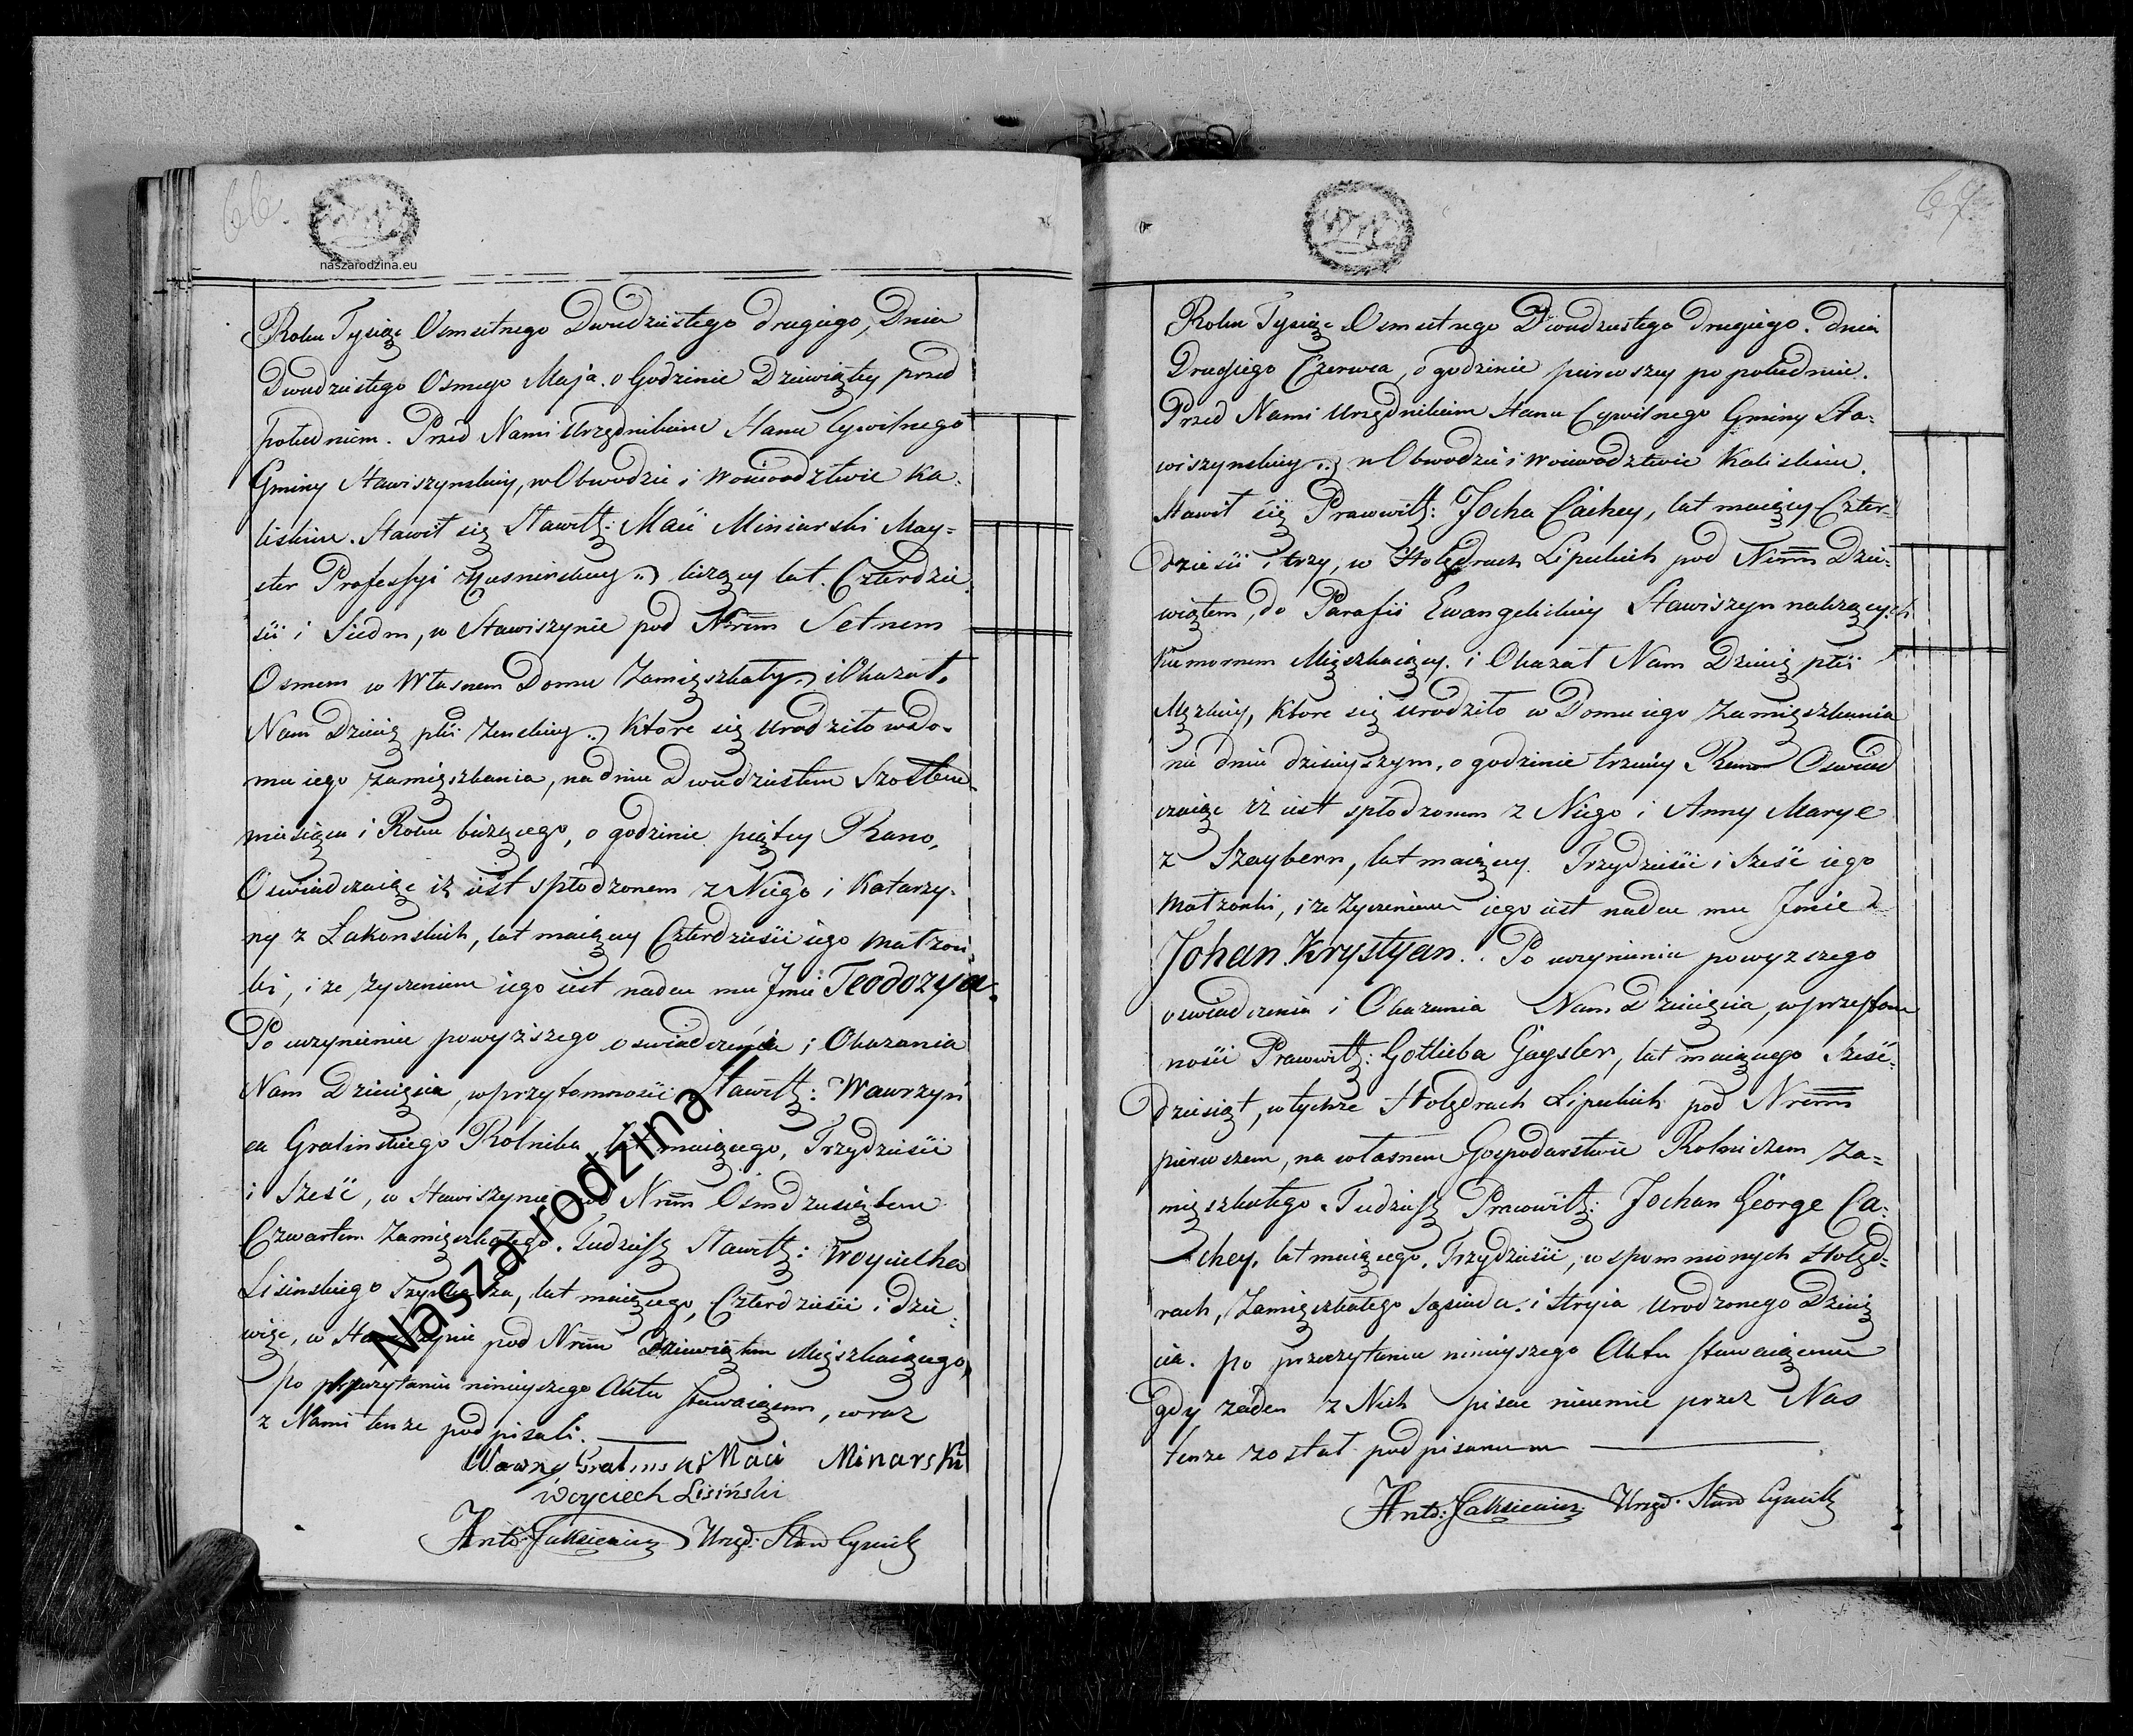 66.
naszarodzina.eu
Roku Tysiąc Osmsetnego Dwudziestego drugiego, Dnia
Dwudziestego Osmego Maja. o Godzinie Dziewiątey przed
południem. Przed Nami Urzędnikiem Stanu Cywilnego
Gminy Stawiszynskiey, w Obwodzie i Woiewodztwie Ka-
liskim. Stawił się Sławetł: Maci Miniarski May-
ster Professyi liczący lat. Czterdzie-
sci i Siedm, w Stawiszynie pod Nrem Setnem
Osmem w Własnem Domu Zamięszkały i Okazał.
Nam Dziecię płci Zenskiey Ktore się urodziło w do-
mu iego zamięszkania, na dniu Dwudziestem Szostem
miesiąca i Roku bieżącego, o godzinie piątey Rano,
Oswiadczaiąc iż iest spłodzonem z Niego i Katarzy-
ny z Łakomskich, lat maiącey Czterdziesci iego małzon-
ki, i ze życzeniem iego iest nadać mu Jmie Teodozya.
Po uczynieniu powyższego oswiadczenia i Okazania
Nam Dziecięcia, w przytomnosci Sławetł: Wawrzyń
ca Gralinskiego Rolnika lat maiącego, Trzydziesci
i Szesć, w Stawiszynie pod Nrem Osmdziesiątem
Czwartem Zamięszkałego. Tudzież Sławetł: Woyciecha
Lisinskiego lat maiącego, Czterdziesci i dzie-
więć, w Stawiszynie pod Nrem Dziewiątem Mięszkaiącego,
po przeczytaniu ninieyszego Aktu stawaiącem, wraz
z Nami tenze podpisali.
Wawrzy Gralinski Maci Minarski
Woyciech Lisiński
Anto: Jaksiewicz Urzęd: Stan Cywil
Nasza rodzina
67.
Roku Tysiąc Osmsetnego Dwudziestego drugiego. dnia
Drugiego Czerwca, o godzinie pierwszey po południu.
Przed Nami Urzędnikiem Stanu Cywilnego Gminy Sta-
wiszynskiey w Obwodzie i Woiewodztwie Kaliskim.
Stawił się Prawowitł: Jocha Cachey, lat maiący Czter-
dziesci i trzy, w Holędrach Lipeckich pod Nrem Dzie-
wiątem, do Parafii Ewangelickiey Stawiszyn nalezących
Komornem Mięszkaiący. i Okazał Nam Dziecię płci
Męzkiey, Ktore się urodziło w Domu iego Zamięszkania
na dniu dzisieyszym, o godzinie trzeciey Rano Oswiad
czaiąc iż iest spłodzonem z Niego i Anny Marye
z Szaybern, lat maiącey Trzydziesci i Szesć iego
Małzonki, i ze życzeniem iego iest nadać mu Jmie
Johan Krystyan. Po uczynieniu powyzszego
oswiadczenia i Okazania Nam dziecięcia, w przytom
nosci Prawowitł: Gotlieba Gaysler, lat maiącego Szesć-
dziesiąt, w tychze Holędrach Lipeckich pod Nrem
pierwszem, na własnem Gospodarstwie Rolniczem Za-
mięszkałego. Tudzież Prawowitł: Jochan George Ca-
chey, lat maiącego, Trzydziesci, w spomnionych Holęd-
rach, Zamięszkałego Sąsiada. i Stryia Urodzonego Dziecię
cia. po przeczytaniu ninieyszego Aktu stawaiącemu
gdy zaden z Nich pisac nieumie przez Nas
tenze został podpisanem
Anto: Jaksiewicz Urzęd. Stan Cywil